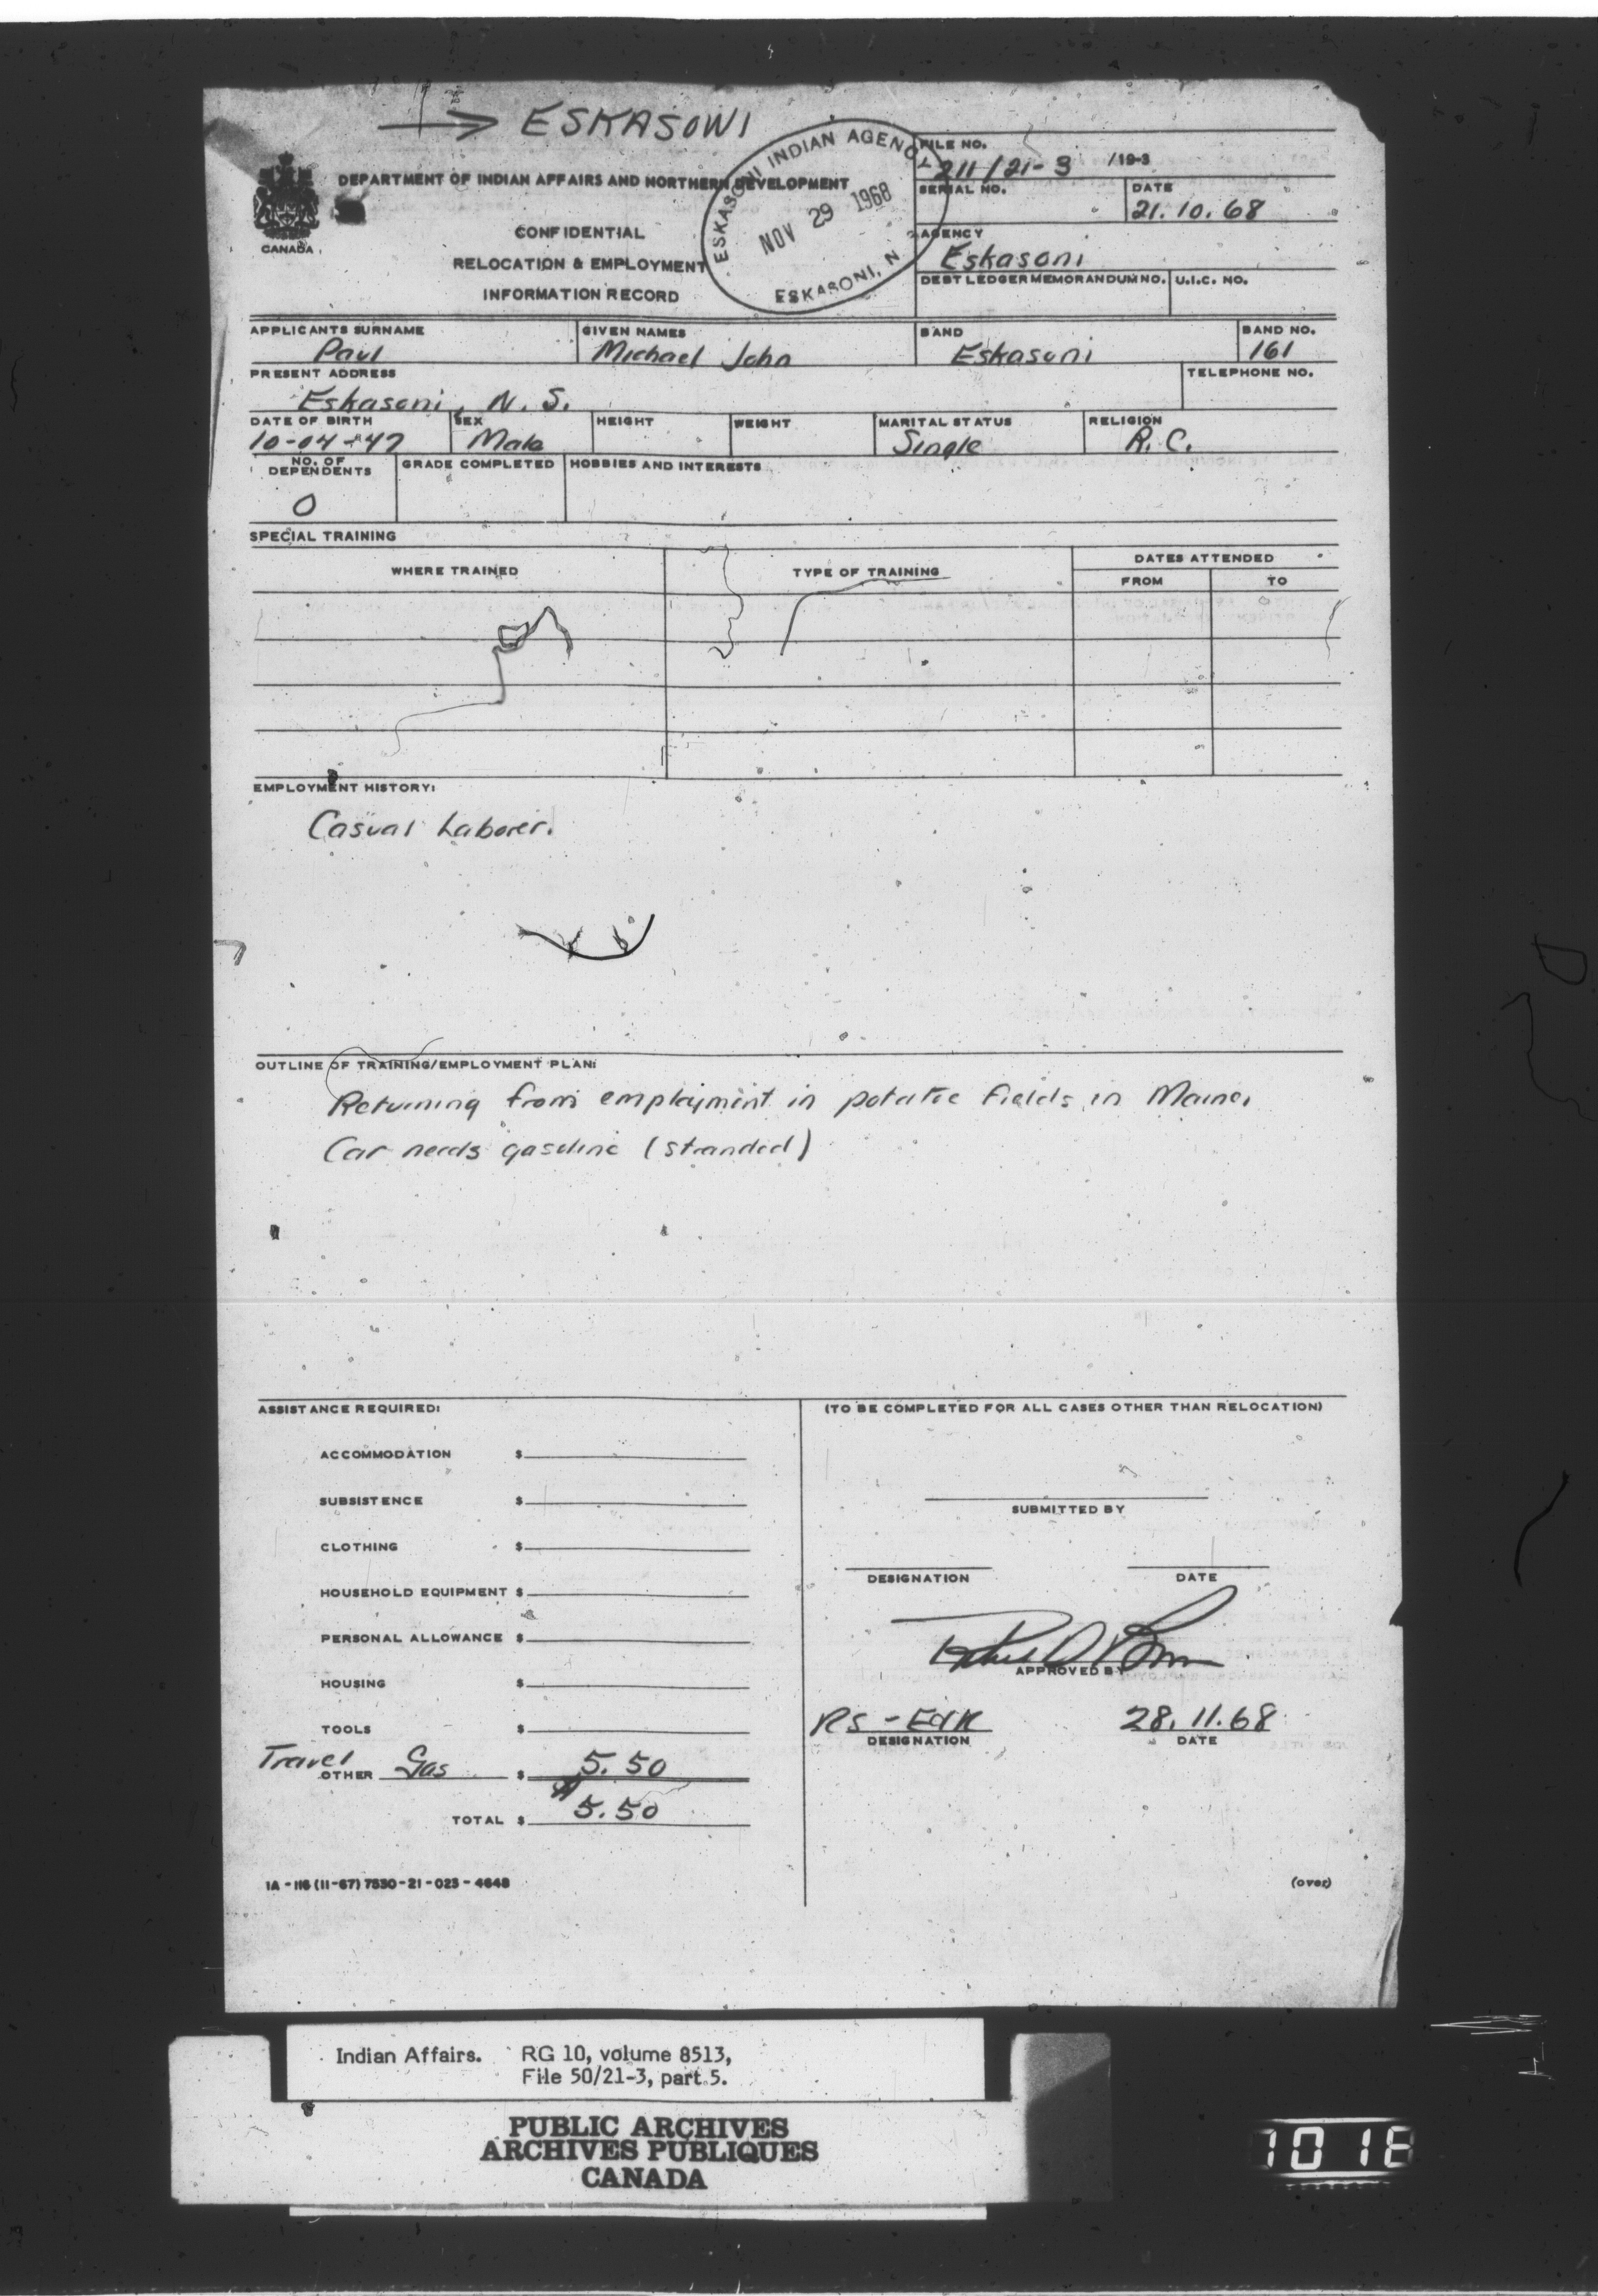 → ESKASONI
DEPARTMENT OF INDIAN AFFAIRS AND NORTHERN DEVELOPMENT
CANADA
CONFIDENTIAL
RELOCATION & EMPLOYMENT
INFORMATION RECORD
ESKASONI INDIAN AGENCY
NOV 29 1968
ESKASONI, N.
FILE NO.
211/21-3 /19-3
SERIAL NO. DATE
21.10.68
AGENCY
Eskasoni
DEBT LEDGER MEMORANDUM NO. U.I.C. NO.
APPLICANTS SURNAME GIVEN NAMES BAND BAND NO.
Paul Michael John Eskasoni 161
PRESENT ADDRESS TELEPHONE NO.
Eskasoni, N. S.
DATE OF BIRTH SEX HEIGHT WEIGHT MARITAL STATUS RELIGION
10-04-47 Male Single R. C.
NO. OF DEPENDENTS GRADE COMPLETED HOBBIES AND INTERESTS
0
SPECIAL TRAINING
WHERE TRAINED TYPE OF TRAINING DATES ATTENDED
FROM TO
EMPLOYMENT HISTORY:
Casual Laborer.
OUTLINE OF TRAINING/EMPLOYMENT PLAN:
Returning from employment in potatoe fields in Maine.
Car needs gasoline (stranded)
ASSISTANCE REQUIRED: (TO BE COMPLETED FOR ALL CASES OTHER THAN RELOCATION)
ACCOMMODATION $
SUBSISTENCE $
SUBMITTED BY
CLOTHING $
DESIGNATION DATE
HOUSEHOLD EQUIPMENT $
PERSONAL ALLOWANCE $
APPROVED BY
HOUSING $
TOOLS $
RS - 28.11.68
DESIGNATION DATE
Travel
OTHER Gas $ 5.50
TOTAL $ 5.50
1A-116 (11-67) 7530-21-023-4648
(over)
Indian Affairs. RG 10, volume 8513,
File 50/21-3, part 5.
PUBLIC ARCHIVES
ARCHIVES PUBLIQUES
CANADA